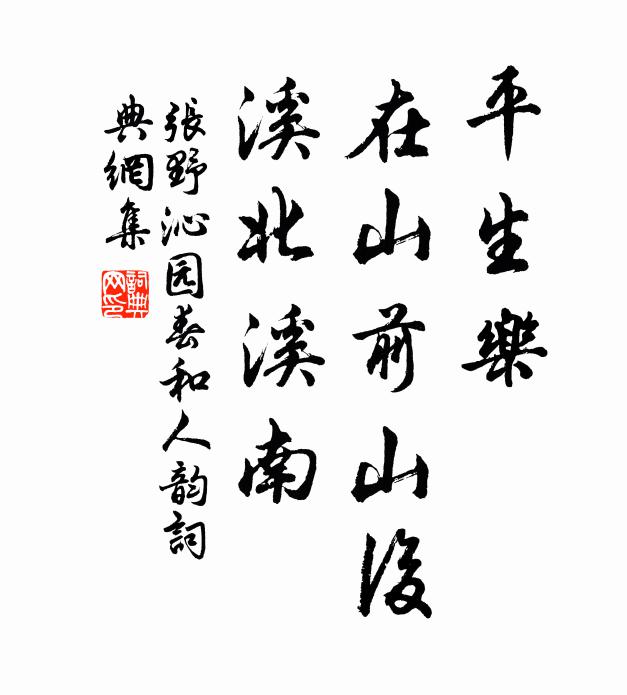 平生樂
在山前山後
溪北溪南
張野沁园春和人韵詞
典網集
詞典网印